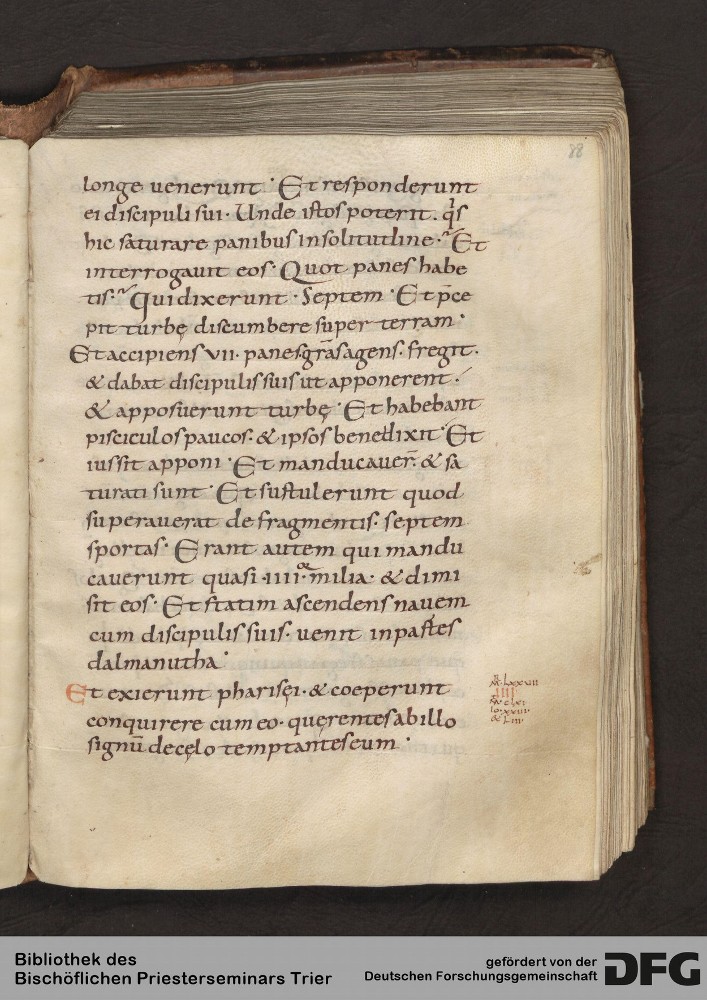 88
longe uenerunt · Et responderunt
ei discipuli sui · Unde istos poterit · q̇s
hic saturare panibus in solitudine · Et
interrogauit eos · Quot panes habe
tis · Qui dixerunt · Septem · Et p̄ce
pit turbę discumbere super terram ·
Et accipiens vii · panes grās agens · fregit ·
& dabat discipulis suis ut apponerent ·
& apposuerunt turbę · Et habebant
pisciculos paucos · & ipsos benedixit · Et
iussit apponi · Et manducauer̄ · & sa
turati sunt · Et sustulerunt quod
superauerat de fragmentis · septem
sportas · Erant autem qui mandu
cauerunt quasi · iiii · milia · & dimi
sit eos · Et statim ascendens nauem
cum discipulis suis · uenit in partes
dalmanutha ·
Et exierunt pharisęi · & coeperunt
conquirere cum eo · quęrentes ab illo
signū de cęlo temptantes eum ·
Bibliothek des
Bischöflichen Priesterseminars Trier
gefördert von der
Deutschen Forschungsgemeinschaft
DFG